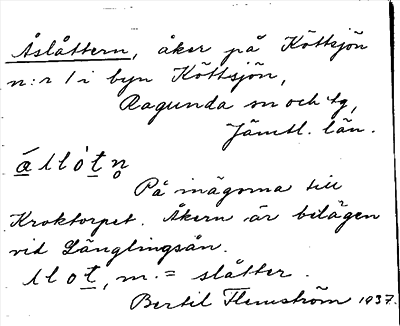 Åslåttern, åker på Köttsjön
n:r 1 i byn Köttsjön,
Ragunda sn och tg,
Jämtl. län.
å l l ò t n̥
På inägorna till
Kroktorpet. Åkern är belägen
vid Länglingsån.
l l o t, m. = slåtter.
Bertil Flemström 1937.